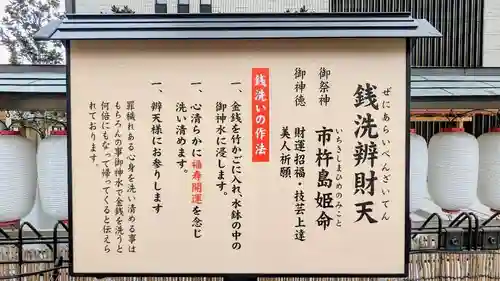 ぜにあらいべんざいてん
銭洗辨財天
いちきしまひめのみこと
御祭神 市杵島姫命
御神徳 財運招福・技芸上達
美人祈願
銭洗いの作法
一、金銭を竹かごに入れ、水鉢の中の
御神水に浸します。
一、心清らかに福寿開運を念じ
洗い清めます。
一、辨天様にお参りします
罪穢れある心身を洗い清める事は
もちろんの事御神水で金銭を洗うと
何倍にもなって帰ってくると伝えら
れております。